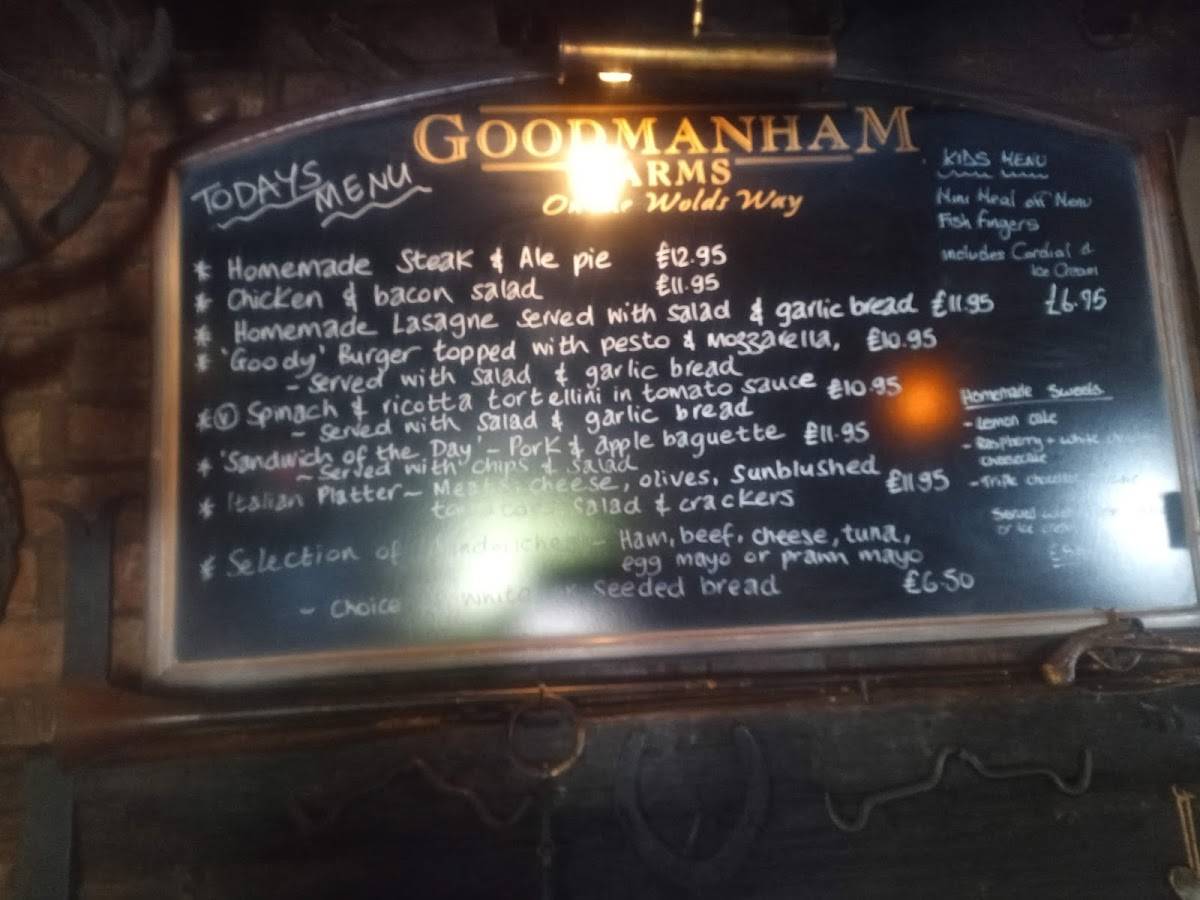 GOODMANHAM
ARMS
Wolds Way
TODAYS MENU
* Homemade Steak & Ale pie £12.95
* Chicken & bacon salad £11.95
* Homemade Lasagne served with salad & garlic bread £11.95
* 'Goody' Burger topped with pesto & mozzarella, £10.95
- served with salad & garlic bread
* (V) Spinach & ricotta tortellini in tomato sauce £10.95
- served with salad & garlic bread
* 'Sandwich of the Day' - Pork & apple baguette £11.95
- served with chips & salad
* Italian Platter - Meats, cheese, olives, sunblushed £11.95
salad & crackers
* Selection of - Ham, beef, cheese, tuna,
egg mayo or prawn mayo
- choice white or seeded bread £6.50
KIDS MENU
Mini Meal off Menu
Fish fingers
includes Cordial &
Ice Cream
£6.95
Homemade Sweets
- Lemon cake
- Raspberry + white
cheesecake
- Triple chocolate
Served